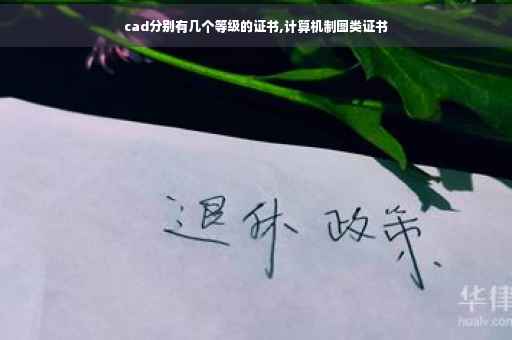 cad分别有几个等级的证书,计算机制图类证书
退休 政策
华律
hualv.com